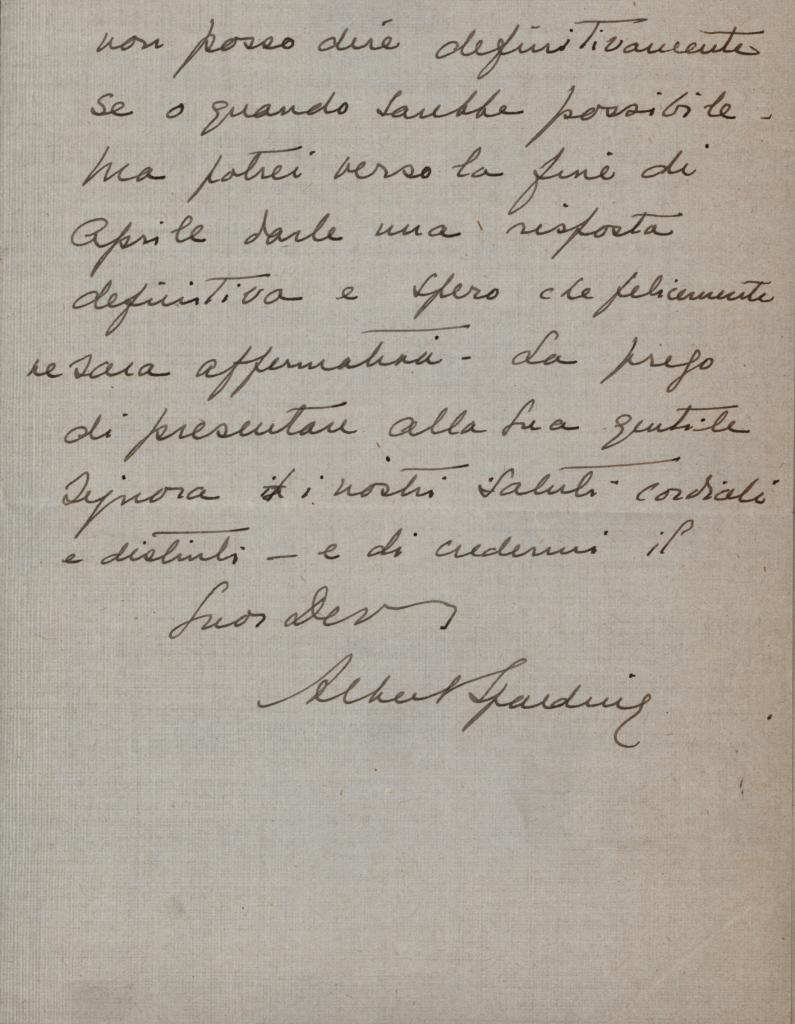 non posso dire definitivamente
se o quando sarebbe possibile -
Ma potrei verso la fine di
Aprile darle una risposta
definitiva e spero che felicemente
ne sara affermativa - La prego
di presentare alla Sua gentile
Signora i nostri saluti cordiali
e distinti - e di credermi il
Suo Dev
Albert Spalding